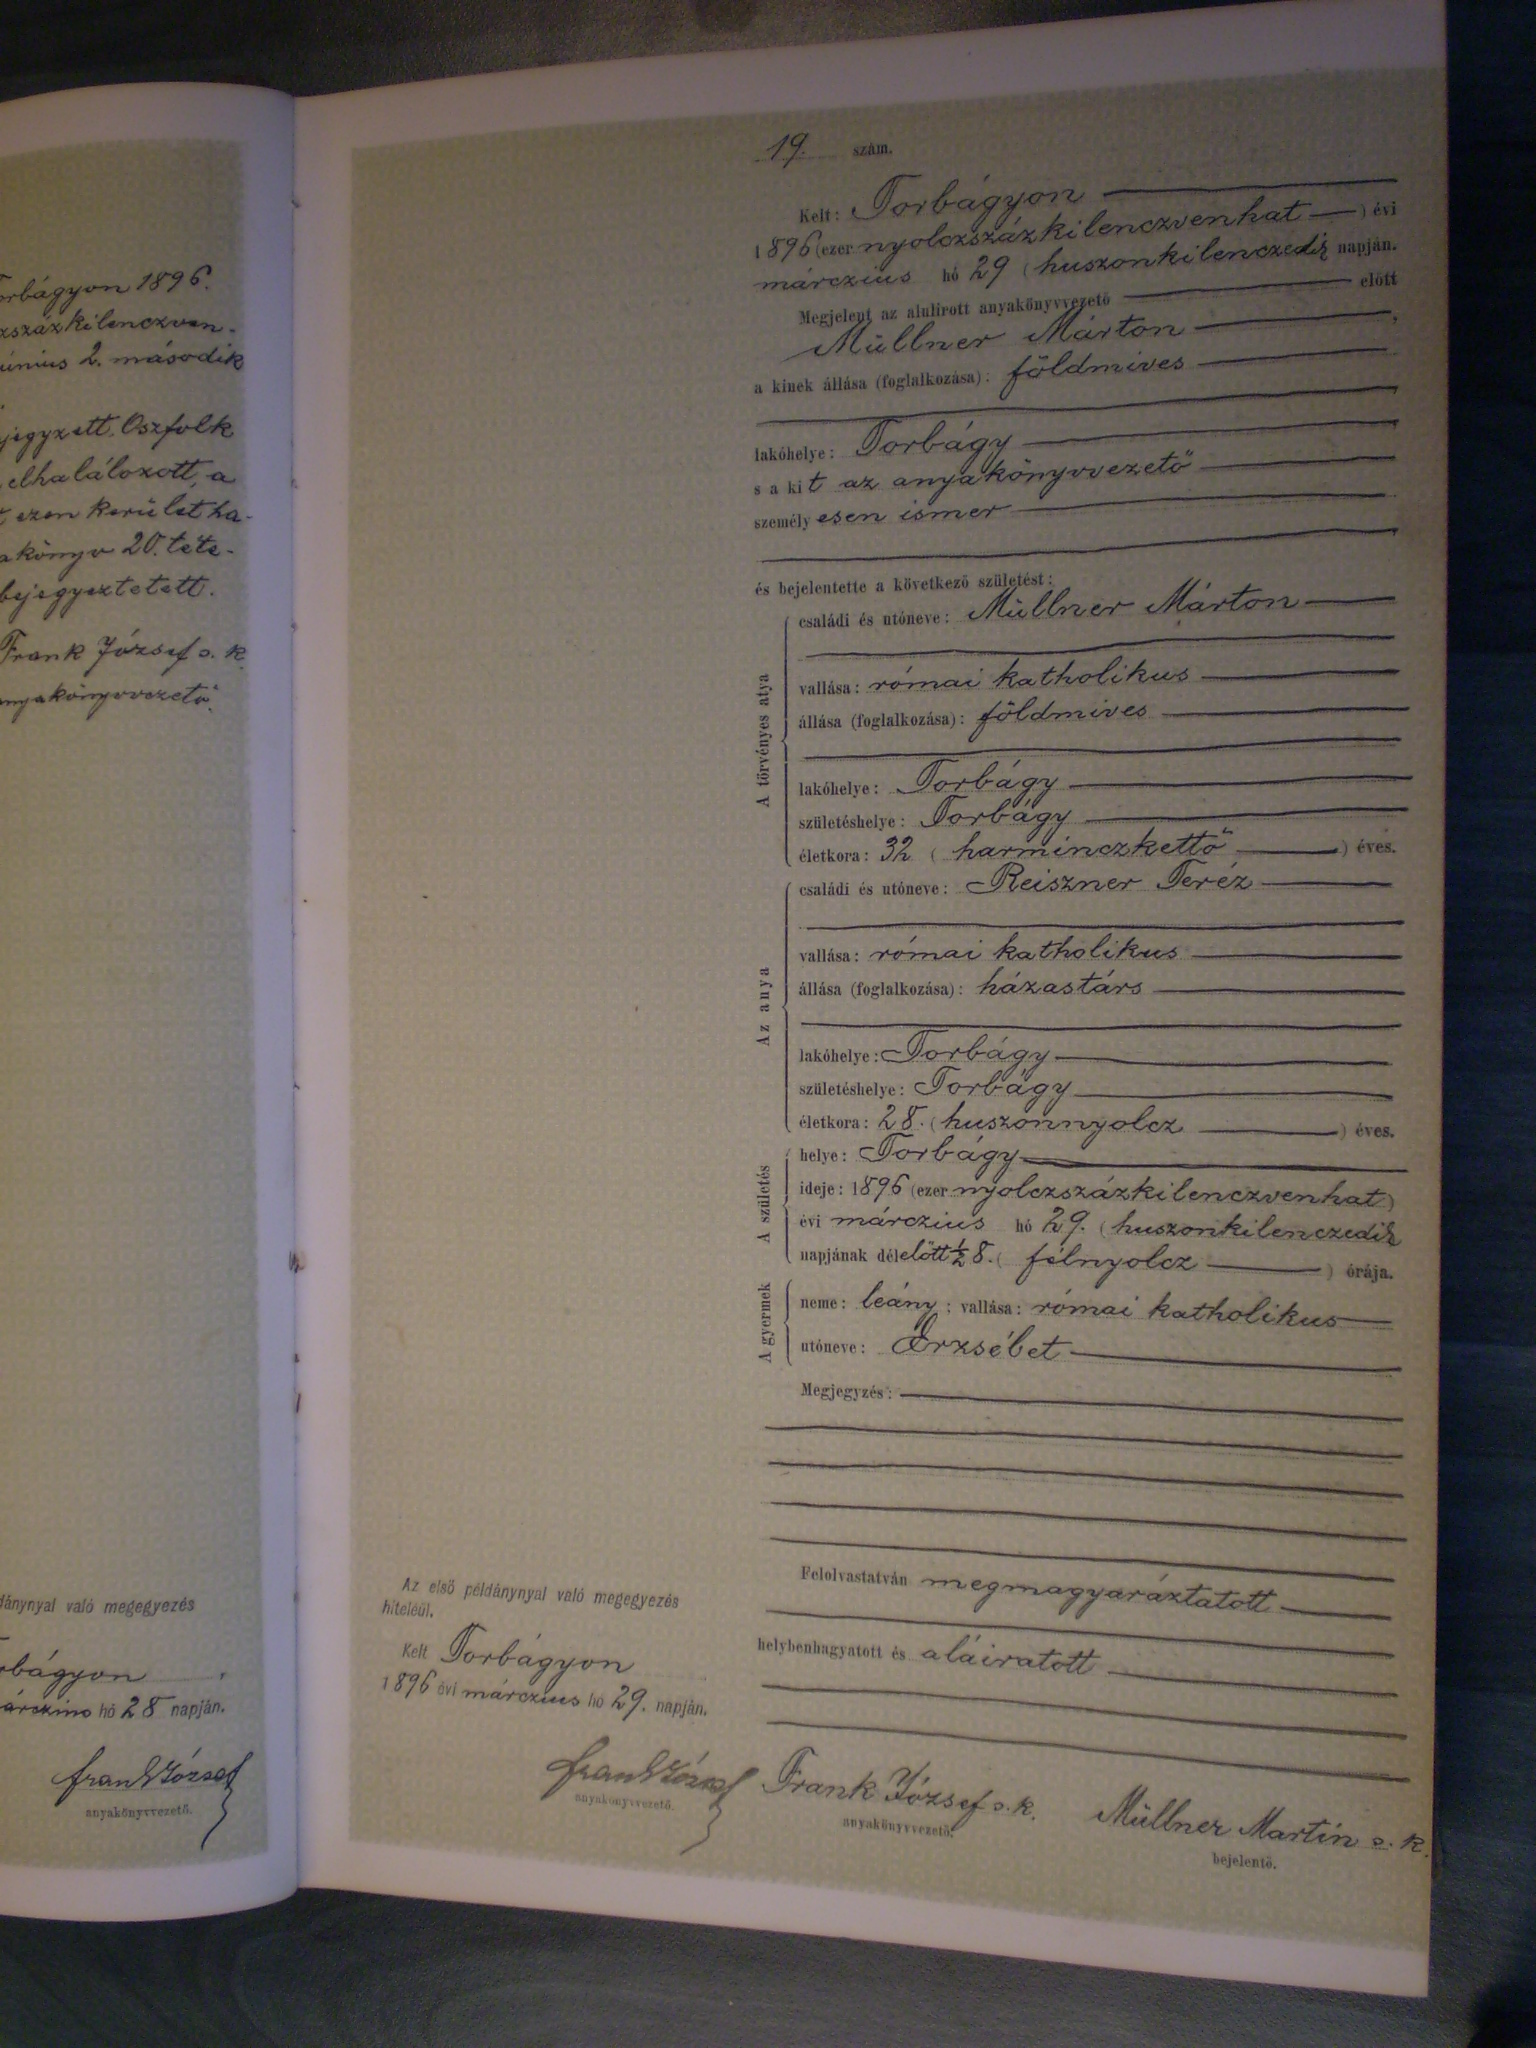 orbágyon 1896.
zszázkilenczven-
június 2. második
jegyzett Oszfolk
elhalálozott, a
t ezen kerület ha-
akönyv 20. téte-
bejegyeztetett.
Frank József s. k.
anyakönyvvezető.
dánynyal való megegyezés
rbágyon
márczius hó 28 napján.
Frank József
anyakönyvvezető.
19. szám.
Kelt: Torbágyon
1896 (ezer nyolczszázkilenczvenhat ) évi
márczius hó 29 (huszonkilenczedik napján.
Megjelent az alulirott anyakönyvvezető előtt
Müllner Márton ,
a kinek állása (foglalkozása): földmives
lakóhelye: Torbágy
s a kit az anyakönyvvezető
személyesen ismer
és bejelentette a következő születést:
A törvényes atya
családi és utóneve: Müllner Márton
vallása: római katholikus
állása (foglalkozása): földmives
lakóhelye: Torbágy
születéshelye: Torbágy
életkora: 32 (harminczkettő ) éves.
Az anya
családi és utóneve: Reiszner Teréz
vallása: római katholikus
állása (foglalkozása): házastárs
lakóhelye: Torbágy
születéshelye: Torbágy
életkora: 28. (huszonnyolcz ) éves.
A születés
helye: Torbágy
ideje: 1896 (ezer nyolczszázkilenczvenhat)
évi márczius hó 29. (huszonkilenczedik
napjának délelőtt ½8. ( félnyolcz ) órája.
A gyermek
neme: leány; vallása: római katholikus
utóneve: Erzsébet
Megjegyzés:
Felolvastatván megmagyaráztatott
helybenhagyatott és aláiratott
Az első példánynyal való megegyezés
hiteléül.
Kelt Torbágyon
1896 évi márczius hó 29. napján.
Frank József
anyakönyvvezető.
Frank József s. k.
anyakönyvvezető.
Müllner Martin s. k.
bejelentő.